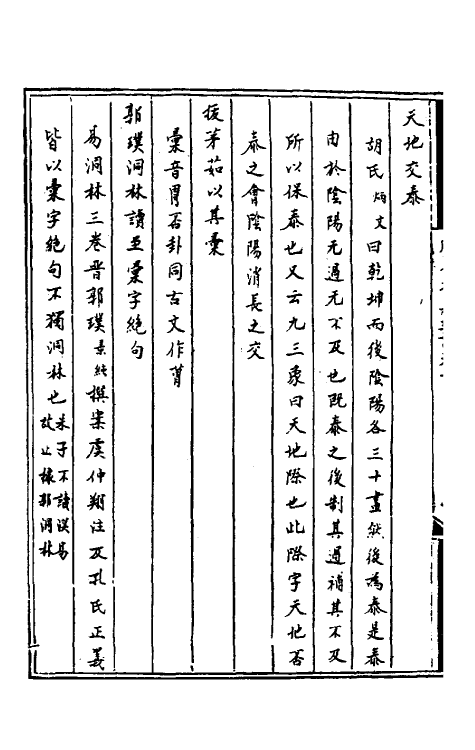 天地交泰
胡氏炳文曰乾坤而後陰陽各三十畫然後為泰是泰
由於陰陽无過无不及也既泰之後制其過補其不及
所以保泰也又云九三象曰天地際也此際字天地否
泰之會陰陽消長之交
拔茅茹以其彙
彙音胃否卦同古文作䔾
郭璞洞林讀至彙字絶句
易洞林三卷晉郭璞景純撰案虞仲翔注及孔氏正義
皆以彙字絶句不獨洞林也朱子不讀漢易故止據郭洞林